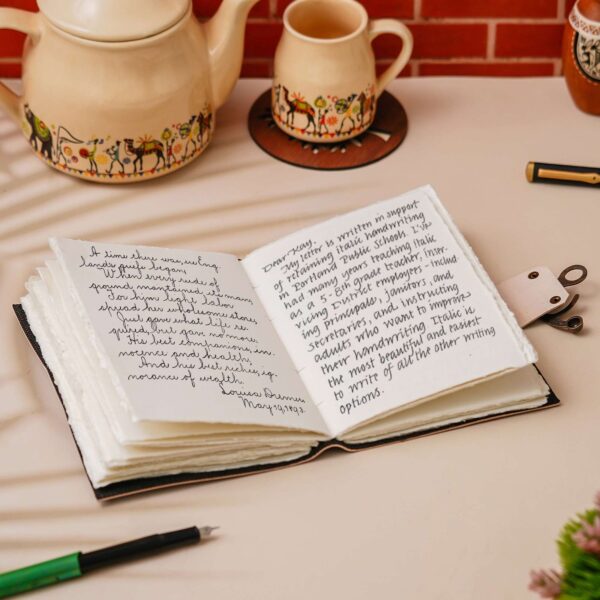 A time there was, ere Eng.
lands griefs began,
When every rude of
ground maintained its man;
For him light labor
spread her wholesome store,
Just gave what life re
quired, but gave no more:
His best companions, inn.
nocence and health,
And his best riches, ig.
norance of wealth.
Louisa
May 19, 1893.
Dear Kay,
My letter is written in support
of retaining italic handwriting
in Portland Public Schools. I've
had many years teaching italic
as a 5-8th grade teacher, inser-
vicing District employees - includ
ing principals, janitors, and
secretaries, and instructing
adults who want to improve
their handwriting. Italic is
the most beautiful and easiest
to write of all the other writing
options.